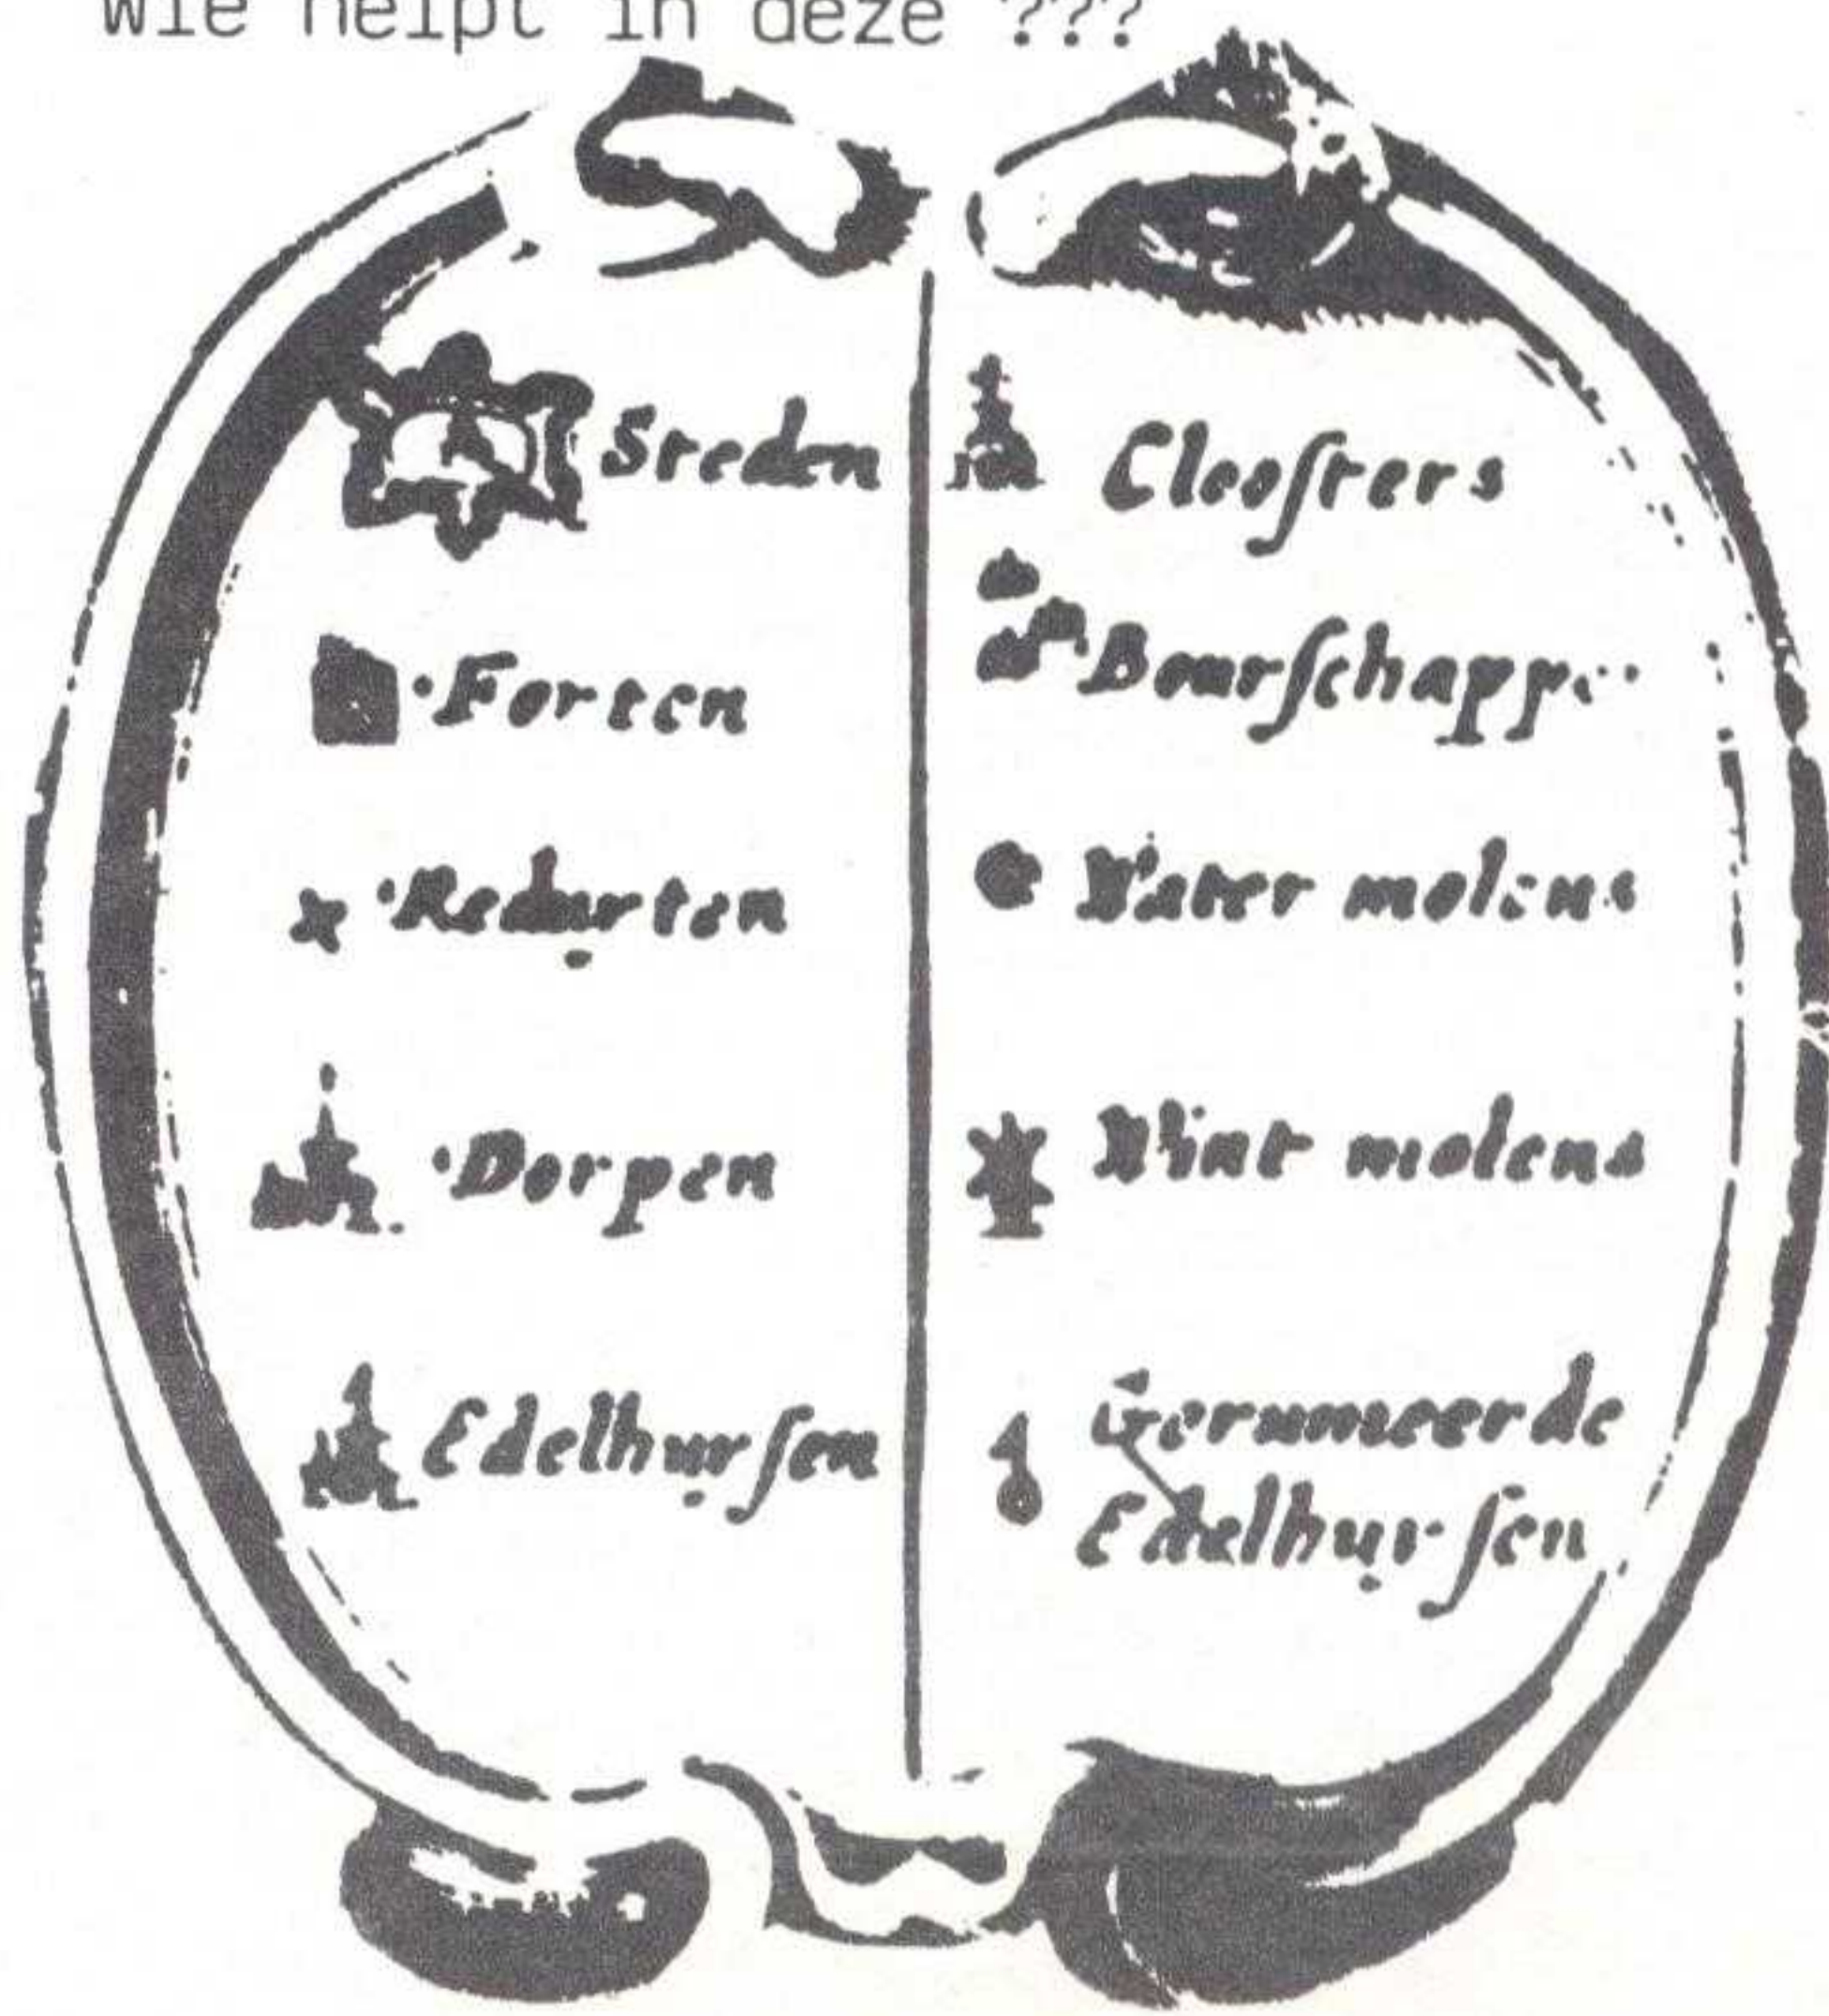 Wie helpt in deze ???
Steden
Forten
Reduyten
Dorpen
Edelhuyſen
Clooſters
Water molens
Wint molens
Geruineerde
Edelhuyſen